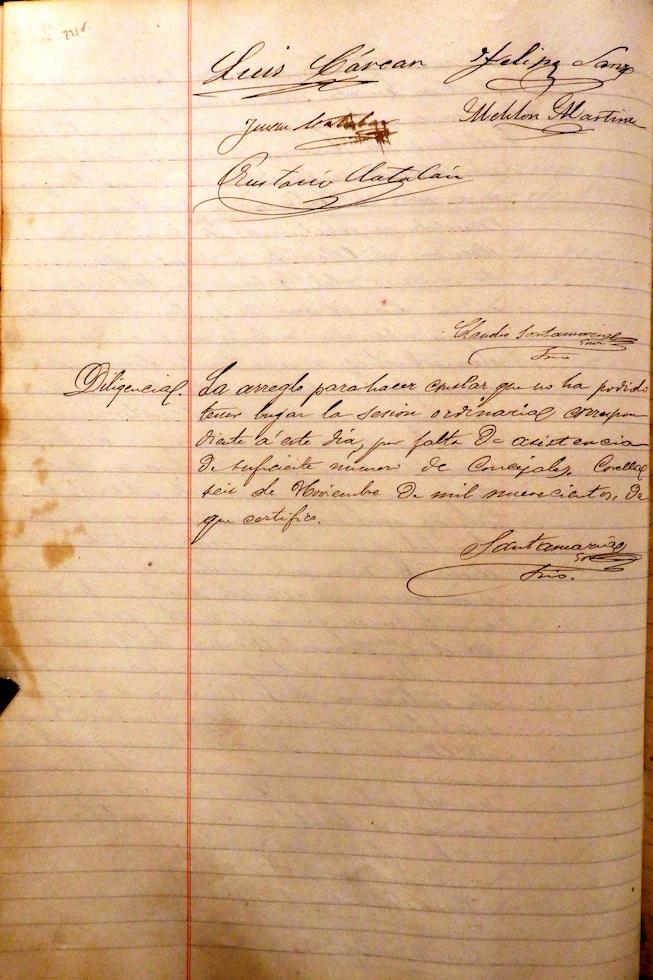 221v
Luis Cárcar Felipe Sanz
Juan Catalan Meliton Martinez
Eustasio Catalán
Claudio Santamaria
Srio
Diligencia. La arreglo para hacer constar que no ha podido
tener lugar la sesion ordinaria correspon
diente á este dia, por falta de asistencia
de suficiente número de Concejales. Corella
seis de Noviembre de mil nuevecientos, de
que certifico.
Santamaria
Srio.